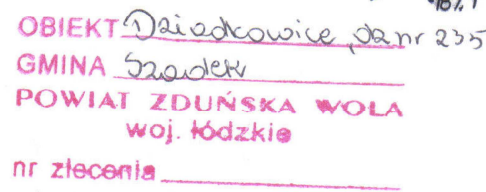 OBIEKT Dziadkowice, dz nr 235
GMINA Szadek
POWIAT ZDUŃSKA WOLA
woj. łódzkie
nr zlecenia